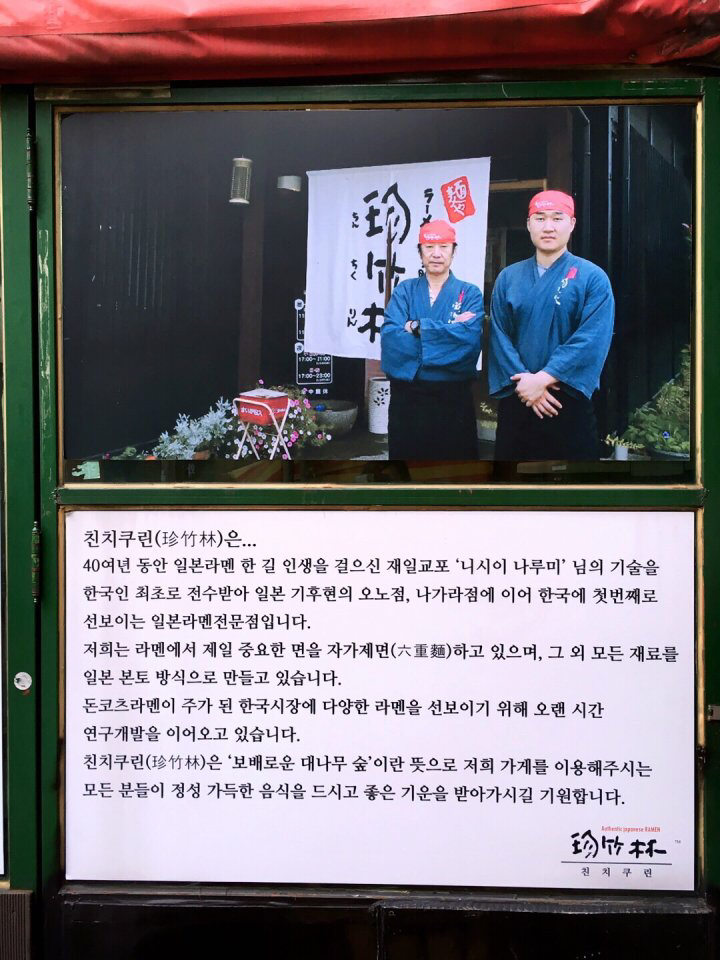 麺や
ラーメン
珍竹林
ちん
ちく
りん
17:00~23:00
친치쿠린(珍竹林)은...
40여년 동안 일본라멘 한 길 인생을 걸으신 재일교포 ‘니시이 나루미’ 님의 기술을
한국인 최초로 전수받아 일본 기후현의 오노점, 나가라점에 이어 한국에 첫번째로
선보이는 일본라멘전문점입니다.
저희는 라멘에서 제일 중요한 면을 자가제면(六重麵)하고 있으며, 그 외 모든 재료를
일본 본토 방식으로 만들고 있습니다.
돈코츠라멘이 주가 된 한국시장에 다양한 라멘을 선보이기 위해 오랜 시간
연구개발을 이어오고 있습니다.
친치쿠린(珍竹林)은 ‘보배로운 대나무 숲’이란 뜻으로 저희 가게를 이용해주시는
모든 분들이 정성 가득한 음식을 드시고 좋은 기운을 받아가시길 기원합니다.
Authentic japanese RAMEN
珍竹林 TM
친치쿠린